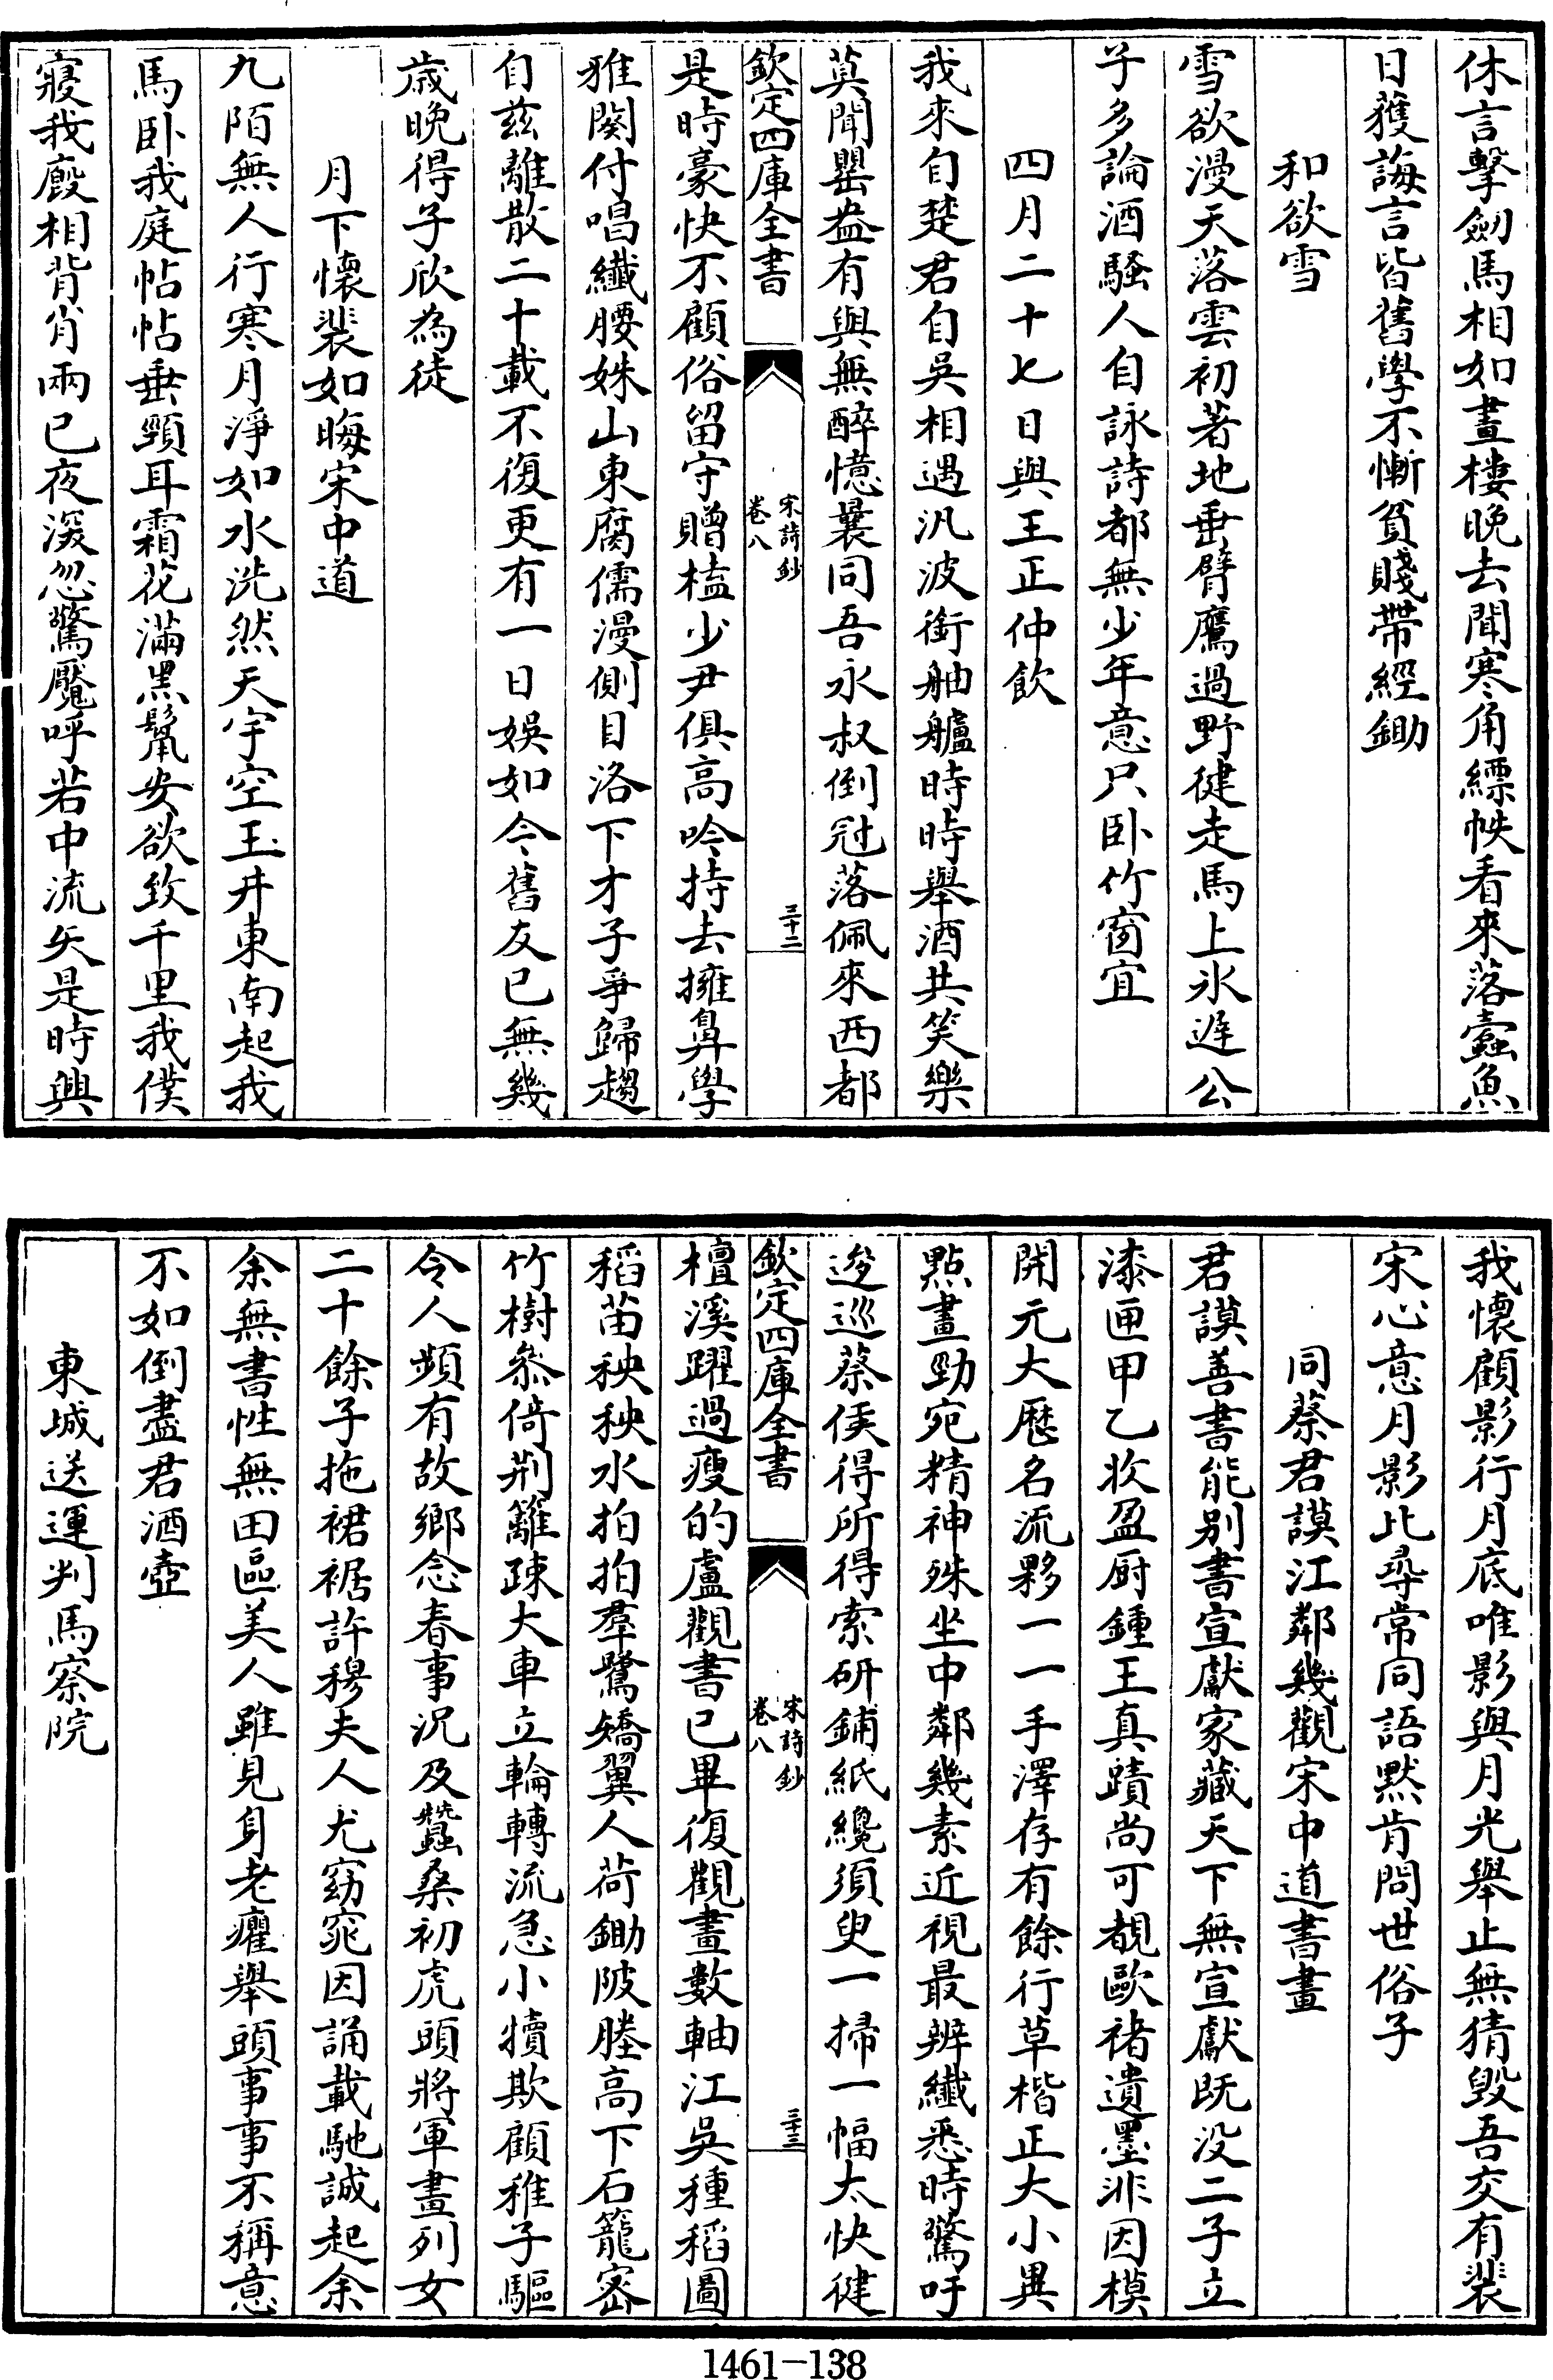 休言擊劒馬相如畫樓晚去聞寒角縹帙看來落蠧魚
日獲誨言皆舊學不慚貧賤帶經鋤
和欲雪
雪欲漫天落雲初著地垂臂鷹過野健走馬上氷遲公
子多論酒騷人自詠詩都無少年意只卧竹窗宜
四月二十七日與王正仲飲
我來自楚君自吳相遇汎波銜舳艫時時舉酒共笑樂
莫聞罌盎有與無醉憶曩同吾永叔倒冠落佩來西都
欽定四庫全書
宋詩鈔
卷八
三十二
是時豪快不顧俗留守贈榼少尹俱高吟持去擁鼻學
雅闋付唱纖腰姝山東腐儒漫側目洛下才子爭歸趨
自兹離散二十載不復更有一日娛如今舊友已無幾
歲晚得子欣為徒
月下懷裴如晦宋中道
九陌無人行寒月淨如水洗然天宇空玉井東南起我
馬卧我庭帖帖垂頸耳霜花滿黑鬛安欲致千里我僕
寢我廄相背肖兩已夜深忽驚魘呼若中流矢是時興
我懷顧影行月底唯影與月光舉止無猜毀吾交有裴
宋心意月影比尋常同語默肯問世俗子
同蔡君謨江鄰幾觀宋中道書畫
君謨善書能别書宣獻家藏天下無宣獻既没二子立
漆匣甲乙收盈厨鍾王真蹟尚可覩歐褚遺墨非因模
開元大厯名流夥一一手澤存有餘行草楷正大小異
點畫勁宛精神殊坐中鄰幾素近視最辨纖悉時驚吁
逡巡蔡侯得所得索研鋪紙纔須臾一掃一幅太快健
欽定四庫全書
宋詩鈔
卷八
三十三
檀溪躍過瘦的盧觀書已畢復觀畫數軸江吳種稻圖
稻苗秧秧水拍拍羣鷺矯翼人荷鋤陂塍高下石籠密
竹樹叅倚荆籬疎大車立輪轉流急小犢欺顧稚子驅
令人頻有故鄉念春事況及蠶桑初虎頭將軍畫列女
二十餘子拖裙裾許穆夫人尤窈窕因誦載馳誠起余
余無書性無田區美人雖見身老癯舉頭事事不稱意
不如倒盡君酒壺
東城送運判馬察院
1461—138